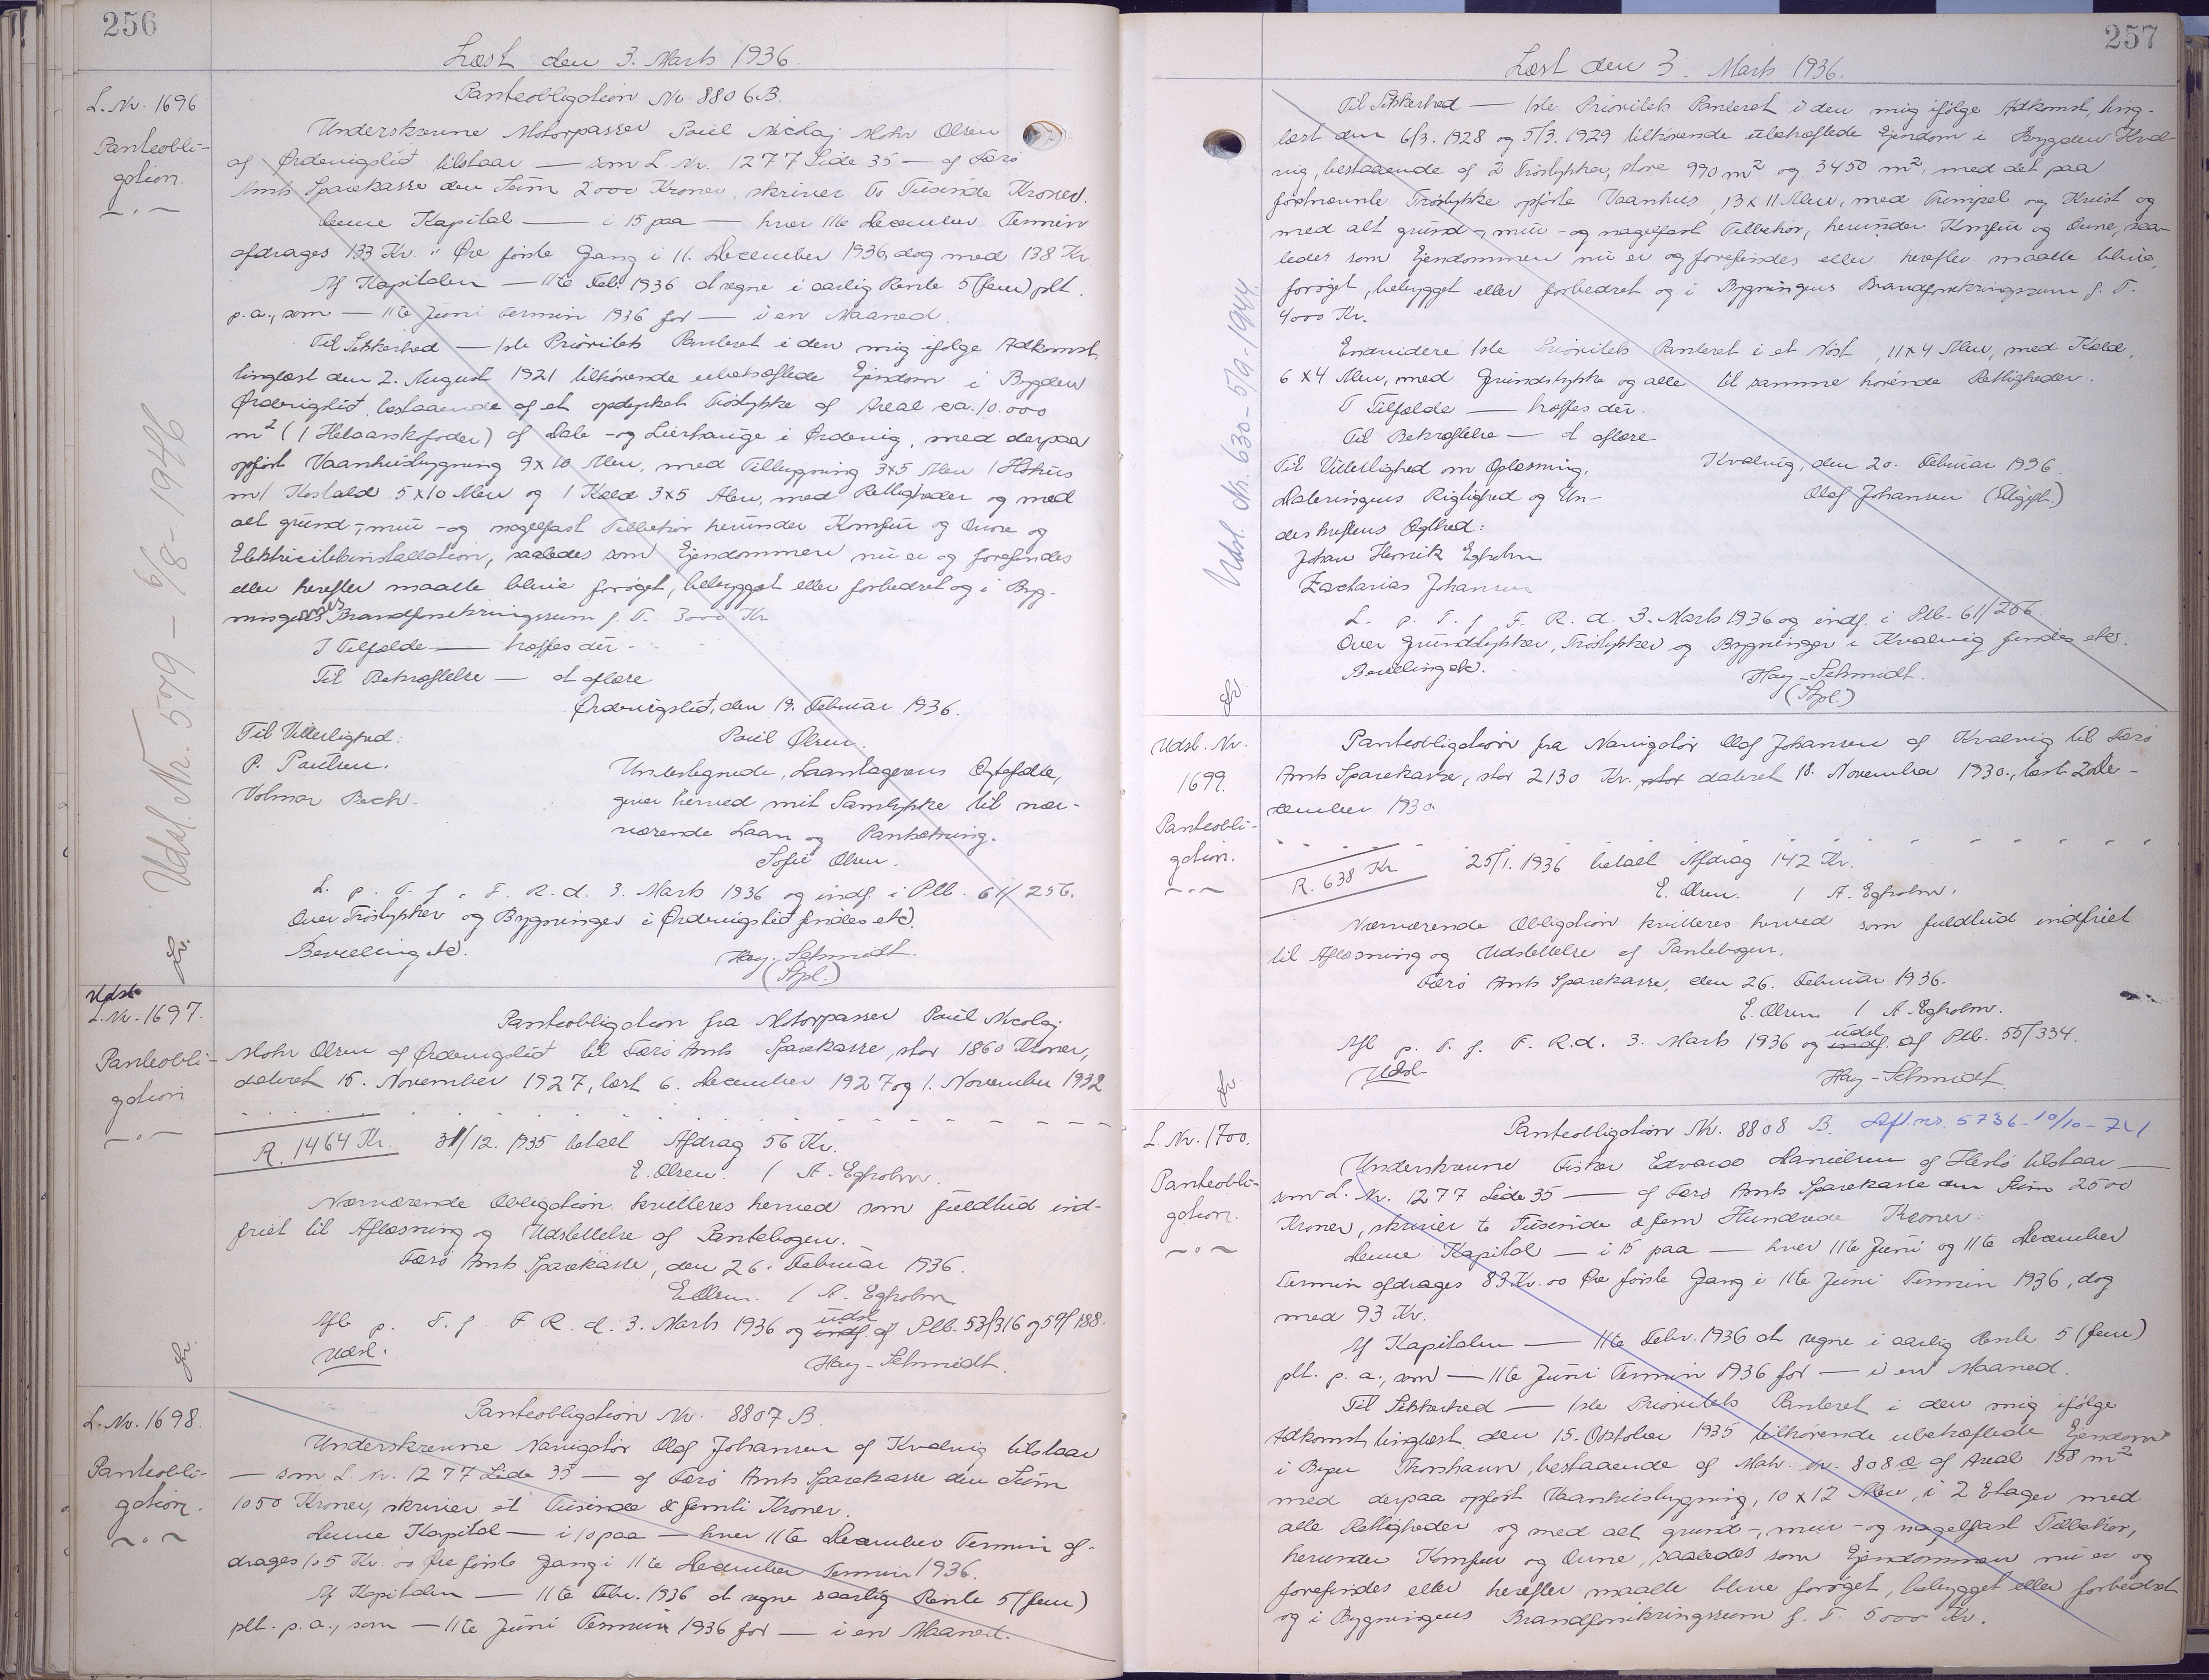 256
Læst den 3. Marts 1936.
L. Nr. 1696
Pantebli-
gation.
Panteobligation Nr. 8806B.
Underskrevne Motorpasser Poul Nicolaj Mohr Olsen
af Ørdevigslid tilstaar — som L. Nr. 1277 Side 35 — af Færø
Amts Sparekasse den Sum 2000 Kroner, skriver to Tusinde Kroner.
Denne Kapital — i 15 paa — hver 11te December Termin
afdrages 133 Kr. " Øre første Gang i 11. December 1936, dog med 138 Kr.
Af Kapitalen — 11te Feb. 1936 at regne i aarlig Rente 5 (fem) pCt.
p.a., som — 11te Juni Termin 1936 for — i en Maaned.
Til Sikkerhed — 1ste Prioritets Panteret i den mig ifølge Adkomst,
tinglæst den 2. August 1921 tilhørende ubehæftede Ejendom i Bygden
Ørdevigslid, bestaaende af et opdyrket Trøstykke af Areal ca. 10.000
m² (1 Helaarskofoder) af Dale- og Lierhauge i Ørdevig, med derpaa
opført Vaanhusbygning 9x10 Alen, med Tilbygning 3x5 Alen 1 Høhus
m/ Kostald 5x10 Alen og 1 Kæld 3x5 Alen, med Rettigheder og med
alt grund-, mur- og nagelfast Tilbehør herunder Komfur og Ovne og
Elektricitetsinstallation, saaledes som Ejendommen nu er og forefindes
eller herefter maatte blive forøget, bebygget eller forbedret og i Byg-
ningernes Brandforsikringssum f. T. 3000 Kr.
I Tilfælde — træffes dér.
Til Bekræftelse — at aflæse
Ørdevigslid, den 19. Februar 1936.
Til Vitterlighed: Poul Olsen.
P. Poulsen. Undertegnede, Laantagerens Ægtefælle,
Volmar Bech. giver herved mit Samtykke til nær-
værende Laan og Pantsætning.
Sofie Olsen.
L. p. T. f. F. R. d. 3. Marts 1936 og indf. i Ptb. 61/256.
Over Trøstykker og Bygninger i Ørdevigslid findes etc.
Bevilling etc. Hay-Schmidt.
(Spl.)
Udsl. Nr. 579 – 6/8-1946
Udsl.
L. Nr. 1697.
Panteobli-
gation
Panteobligation fra Motorpasser Poul Nicolaj
Mohr Olsen af Ørdevigslid til Færø Amts Sparekasse, stor 1860 Kroner,
dateret 15. November 1927, læst 6. December 1927 og 1. November 1932
R. 1464 Kr. 31/12. 1935 betalt Afdrag 56 Kr.
E. Olsen. / A. Egholm.
Nærværende Obligation kvitteres herved som fuldtud ind-
friet til Aflæsning og Udslettelse af Pantebogen.
Færø Amts Sparekasse, den 26. Februar 1936.
E. Olsen. / A. Egholm
Afl. p. T. f. F. R. d. 3. Marts 1936 og indf. udsl. af Ptb. 53/316 og 59/188.
Udsl. Hay-Schmidt.
L. Nr. 1698.
Panteobli-
gation.
Panteobligation Nr. 8807 B.
Underskrevne Navigatør Olaf Johansen af Kvalvig tilstaar
— som L. Nr. 1277 Side 35 — af Færø Amts Sparekasse den Sum
1050 Kroner, skriver et Tusinde & femti Kroner.
Denne Kapital — i 10 paa — hver 11te December Termin af-
drages 105 Kr. 00 Øre første Gang i 11te December Termin 1936.
Af Kapitalen — 11te Febr. 1936 at regne i aarlig Rente 5 (fem)
pCt. p.a., som — 11te Juni Termin 1936 for — i en Maaned.
257
Læst den 3. Marts 1936.
Til Sikkerhed — 1ste Prioritets Panteret i den mig ifølge Adkomst, ting-
læst den 6/3. 1928 og 5/3. 1929 tilhørende ubehæftede Ejendom i Bygden Kval-
vig, bestaaende af 2 Trøstykker, store 990 m² og 3450 m², med det paa
førstnævnte Trøstykke opførte Vaanhus, 13 x 11 Alen, med Trimpel og Kvist og
med alt grund-, mur- og nagelfast Tilbehør, herunder Komfur og Ovne, saa-
ledes som Ejendommen nu er og forefindes eller herefter maatte blive,
forøget, bebygget eller forbedret og i Bygningens Brandforsikringssum f. T.
4000 Kr.
Endvidere 1ste Prioritets Panteret i et Nøst, 11x4 Alen, med Kæld,
6x4 Alen, med Grundstykke og alle til samme hørende Rettigheder.
I Tilfælde — træffes dér.
Til Bekræftelse — at aflæse
Til Vitterlighed om Oplæsning, Kvalvig, den 20. Februar 1936.
Dateringens Rigtighed og Un- Olaf Johansen (Ugift.)
derskriftens Ægthed:
Johan Henrik Egholm
Zacharias Johansen
L. p. T. f. F. R. d. 3. Marts 1936 og indf. i Ptb. 61/256.
Over Grundstykker, Trøstykker og Bygninger i Kvalvig findes etc.
Bevilling etc. Hay-Schmidt.
(Spl.)
Udsl. Nr. 630 - 5/9-1944.
Udsl. Nr.
1699.
Panteobli-
gation.
Panteobligation fra Navigatør Olaf Johansen af Kvalvig til Færø
Amts Sparekasse, stor 2130 Kr., stor dateret 18. November 1930., læst 2 De-
cember 1930.
R. 638 Kr. 25/1. 1936 betalt Afdrag 142 Kr.
E. Olsen. / A. Egholm.
Nærværende Obligation kvitteres herved som fuldtud indfriet
til Aflæsning og Udslettelse af Pantebogen.
Færø Amts Sparekasse, den 26. Februar 1936.
E. Olsen / A. Egholm.
Afl p. T. f. F. R. d. 3. Marts 1936 og indf. udsl af Ptb. 55/334.
Udsl. Hay-Schmidt
L. Nr. 1700.
Panteobli-
gation.
Panteobligation Nr. 8808 B. Afl. nr. 5736 - 10/10-741
Underskrevne Fisker Edvard Danielsen af Hestø tilstaar —
som L. Nr. 1277 Side 35 — af Færø Amts Sparekasse den Sum 2500
Kroner, skriver to Tusinde & fem Hundrede Kroner.
Denne Kapital — i 15 paa — hver 11te Juni og 11te December
Termin afdrages 83 Kr. 00 Øre første Gang i 11te Juni Termin 1936, dog
med 93 Kr.
Af Kapitalen — 11te Febr. 1936 at regne i aarlig Rente 5 (fem)
pCt. p. a., som — 11te Juni Termin 1936 for — i en Maaned.
Til Sikkerhed — 1ste Prioritets Panteret i den mig ifølge
Adkomst, tinglæst den 15. Oktober 1935 tilhørende ubehæftede Ejendom
i Byen Thorshavn, bestaaende af Matr. Nr. 808 æ af Areal 158 m²
med derpaa opført Vaanhusbygning, 10 x 12 Alen, i 2 Etager med
alle Rettigheder og med alt grund-, mur- og nagelfast Tilbehør,
herunder Komfur og Ovne, saaledes som Ejendommen nu er og
forefindes eller herefter maatte blive forøget, bebygget eller forbedret
og i Bygningens Brandforsikringssum f. T. 5000 Kr.